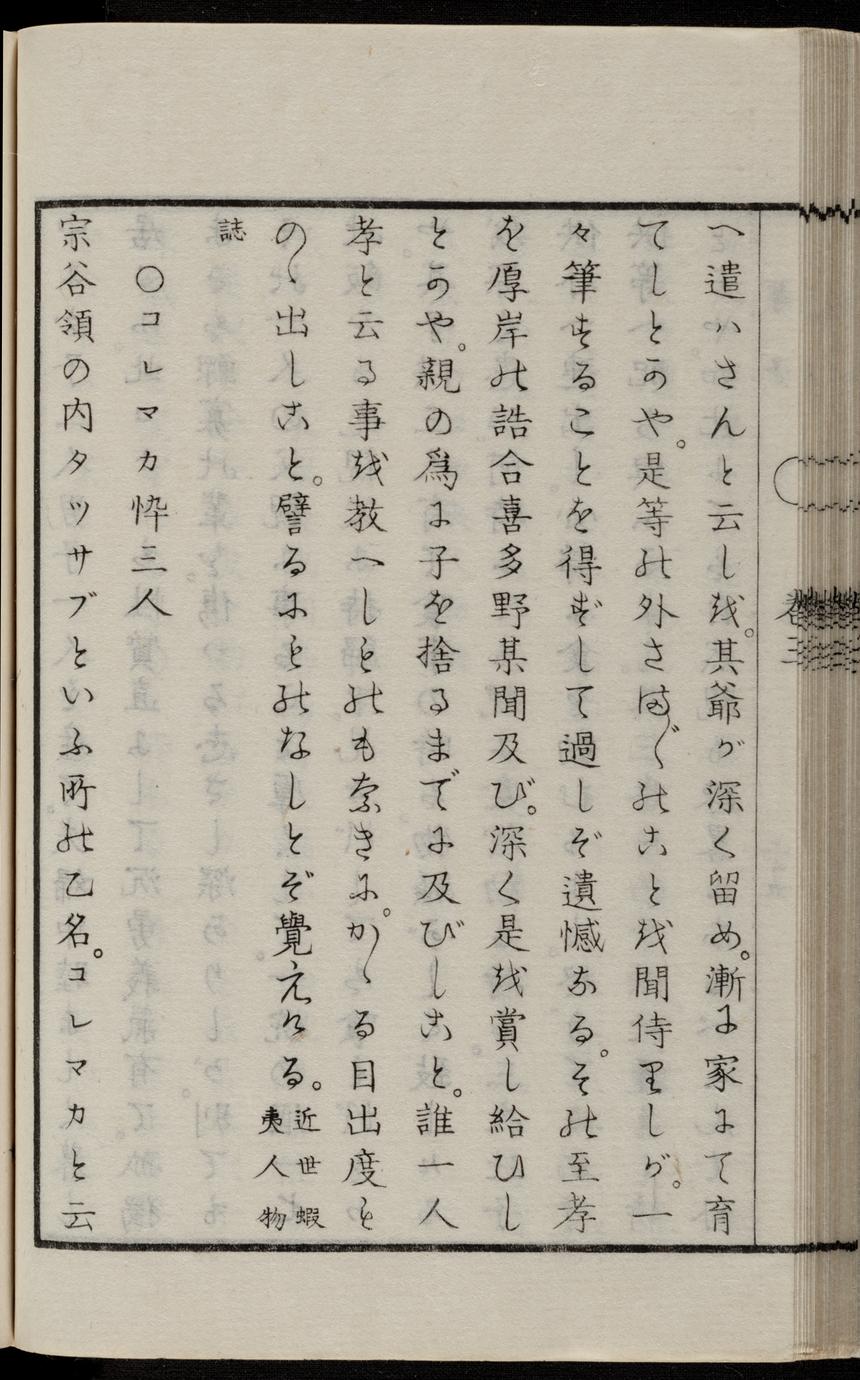 へ遣ハさんと云しを。其爺が深く留め。漸に家にて育
てしとかや。是等の外さま〴〵のこと越聞侍里しが。一
々筆するることを得ずして過しぞ遺憾なる。その至孝
を厚岸の詰合喜多野某聞及び。深く是越賞し給ひし
とかや。親の爲に子を捨るまでに及びしこと。誰一人
孝と云る事越教へしものも奈きに。かゝる目出度も
のゝ出しこと。譬るにものなしとぞ覺えける。近世蝦夷人物
誌
〇コレマカ悴三人
宗谷領の内タツサブといふ所の乙名。コレマカと云